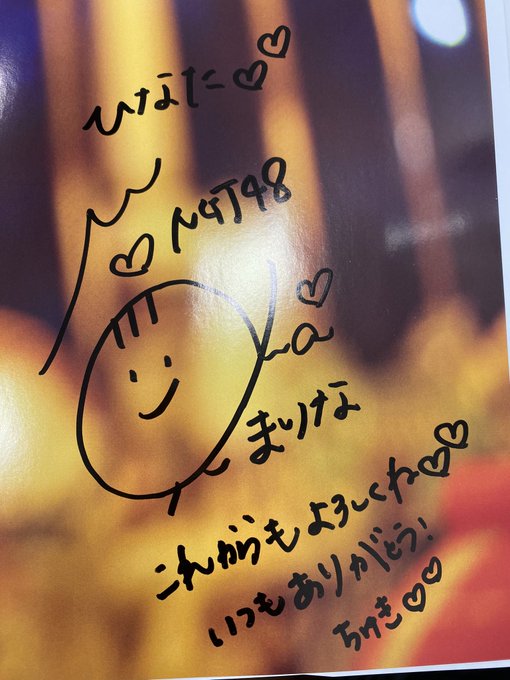 ひなた♡♡
♡NGT48
まりな
これからもよろしくね♡♡
いつもありがとう!